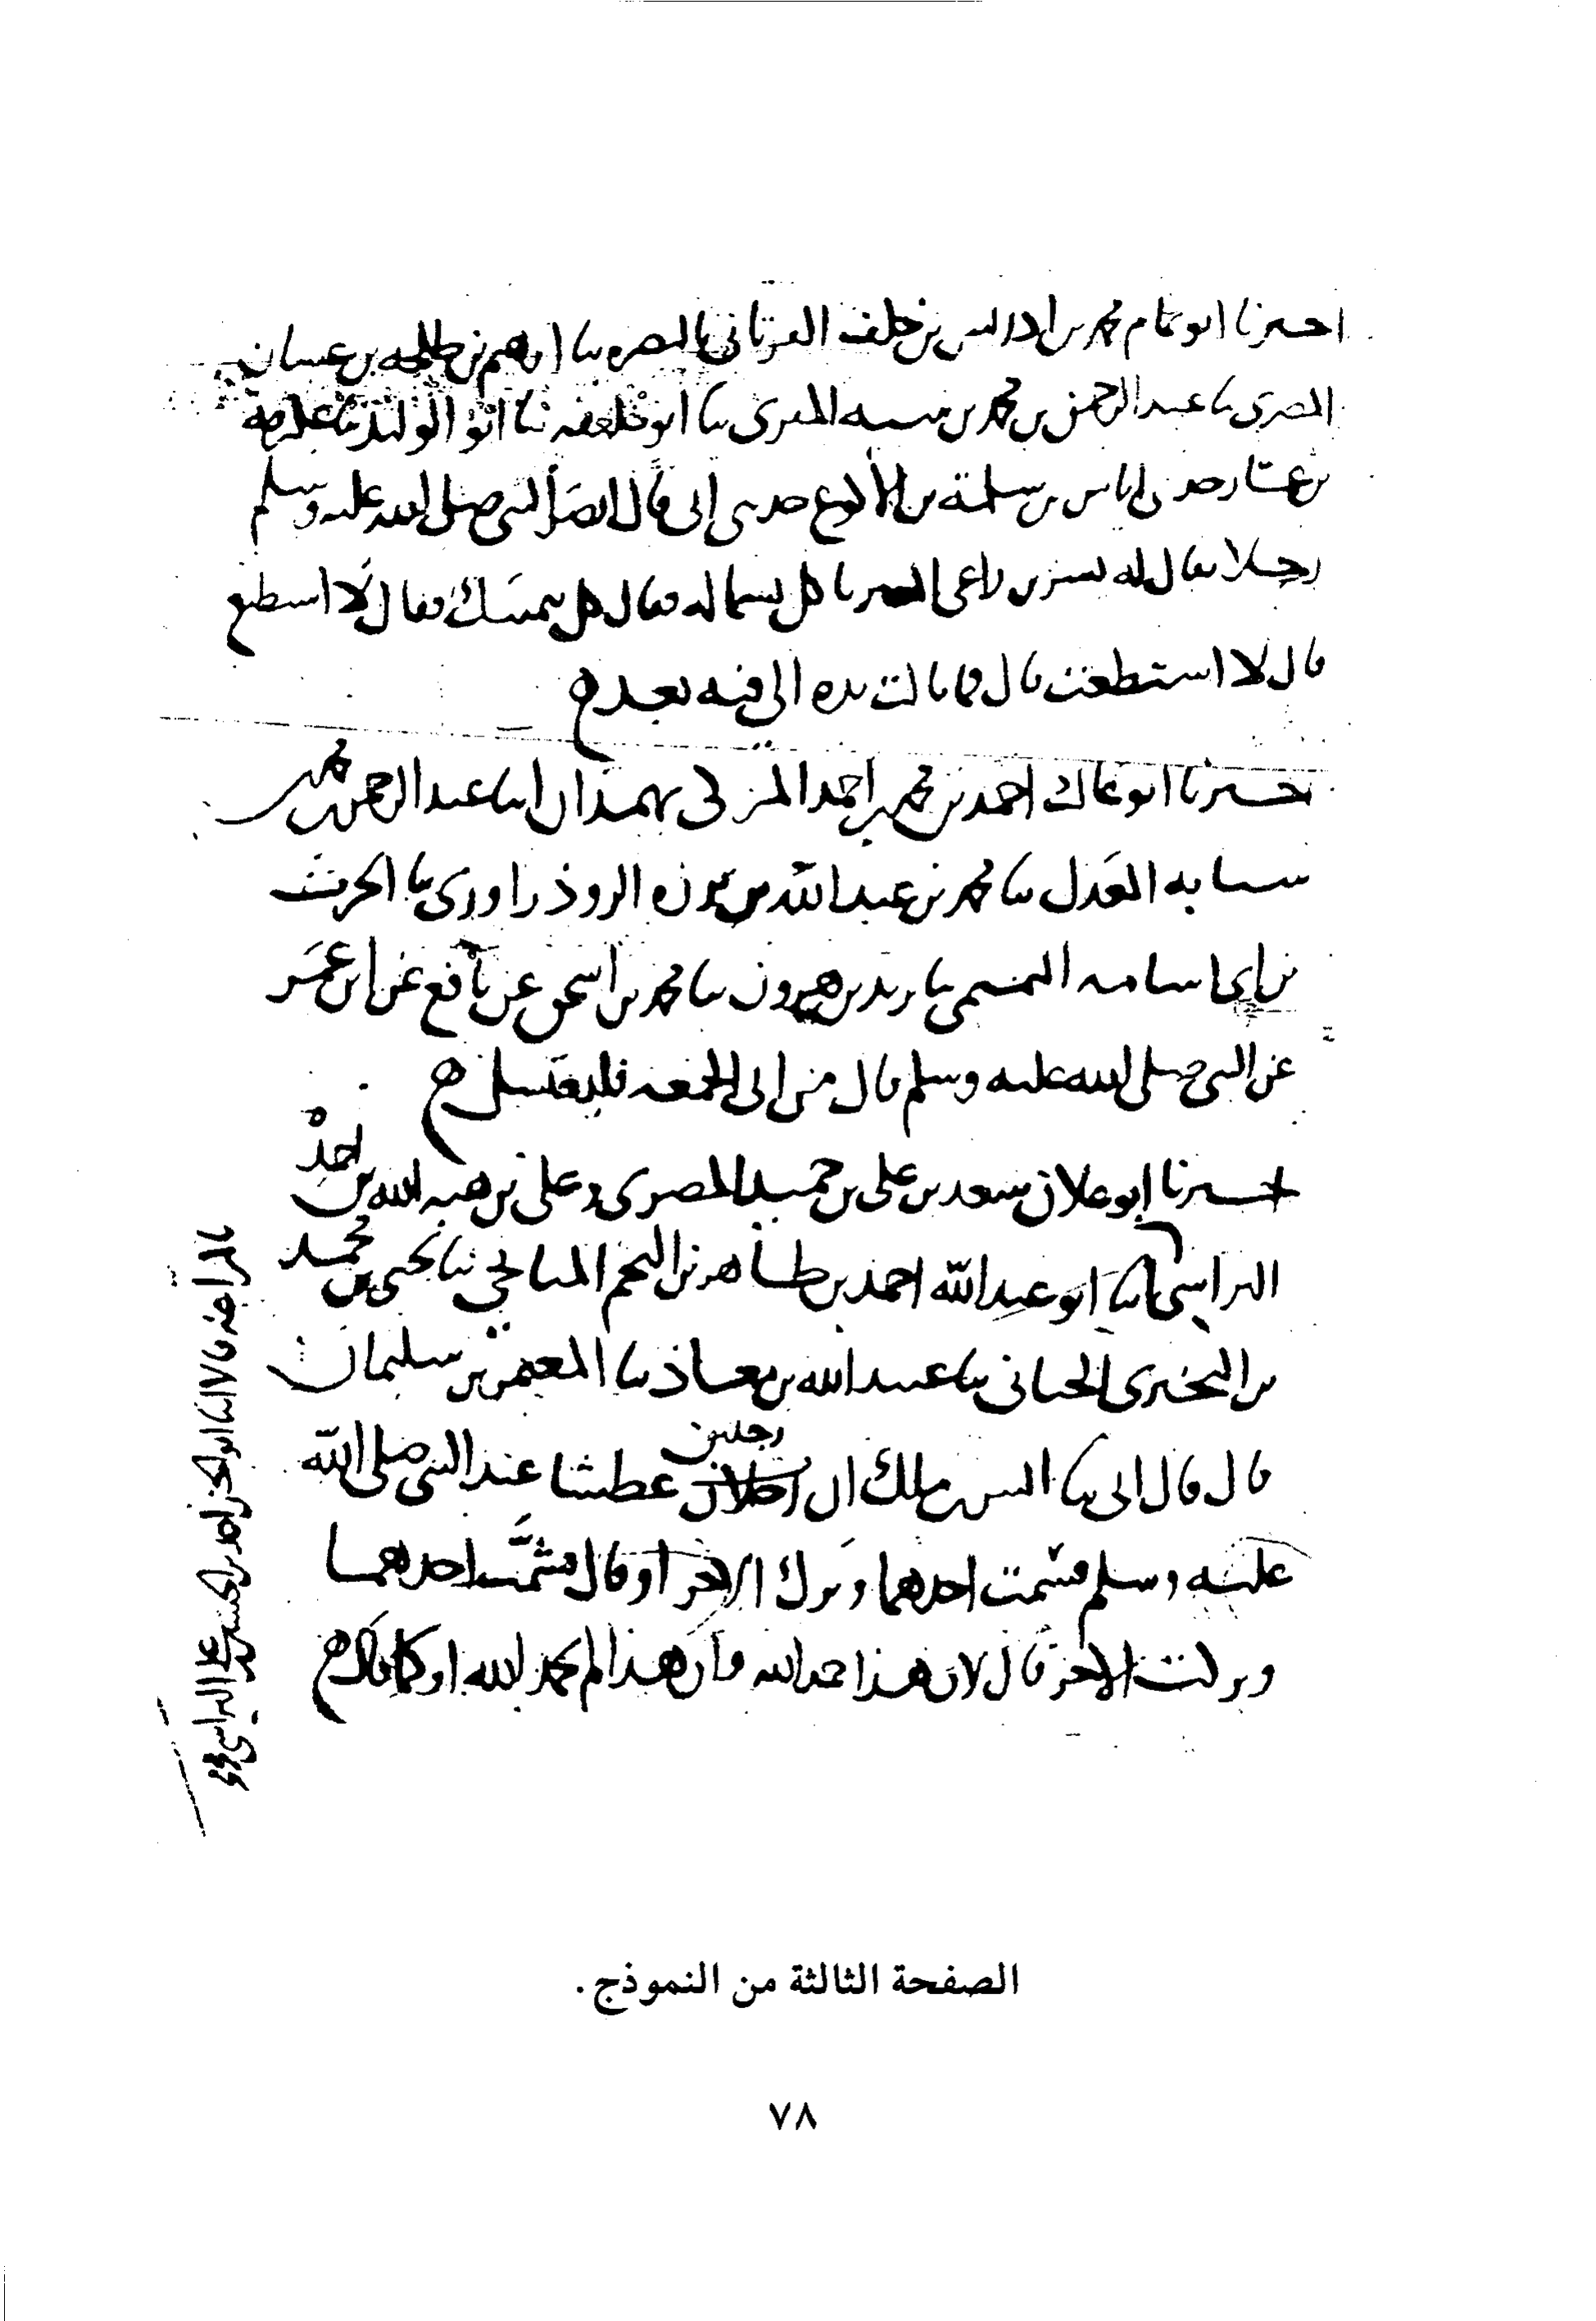 اخبرنا ابو تمام محمد بن ادريس بن خلف بالبصره ثنا ابرهيم بن طلحه بن غسان
البصرى ثنا عبد الرحمن بن محمد بن شيبه المقرى ثنا ابو خليفه ثنا ابو الوليد ثنا عكرمة
بن عمار حدثنى اياس بن سلمة بن الأكوع حدثنى ابى قال ابصر النبى صلى الله عليه وسلم
رجلا يقال له بسر بن راعى العير ياكل بشماله فقال كل بيمينك فقال لا استطيع
قال لا استطعت قال فما نالت يده الى فيه بعد
اخبرنا ابو احمد بن محمد بن احمد المزنى بهمدان ابنا عبد الرحمن بن محمد بن
شبابه المعدل ثنا محمد بن عبد الله بن برزه الروذراورى ثنا الحرث
بن ابى اسامه التميمى ثنا يزيد بن هرون ثنا محمد بن اسحق عن نافع عن ابن عمر
عن النبى صلى الله عليه وسلم قال من اتى الجمعه فليغتسل
اخبرنا ابو علان سعد بن على بن حميد المضرى وعلى بن هبه الله بن احمد
ابنا ابو عبد الله احمد بن طاهر بن النجم الميانجي ثنا يحيى بن محمد
بن البخترى الحنائى ثنا عبيد الله بن معاذ ثنا المعتمر بن سليمان
قال قال ابى ثنا انس بن ملك ان رجلين عطسا عند النبى صلى الله
عليه وسلم فشمت احدهما وترك الاخر او قال فشمت احدهما
وتركت الاخر قال لان هذا حمد الله وان هذا لم يحمد الله او كما قال